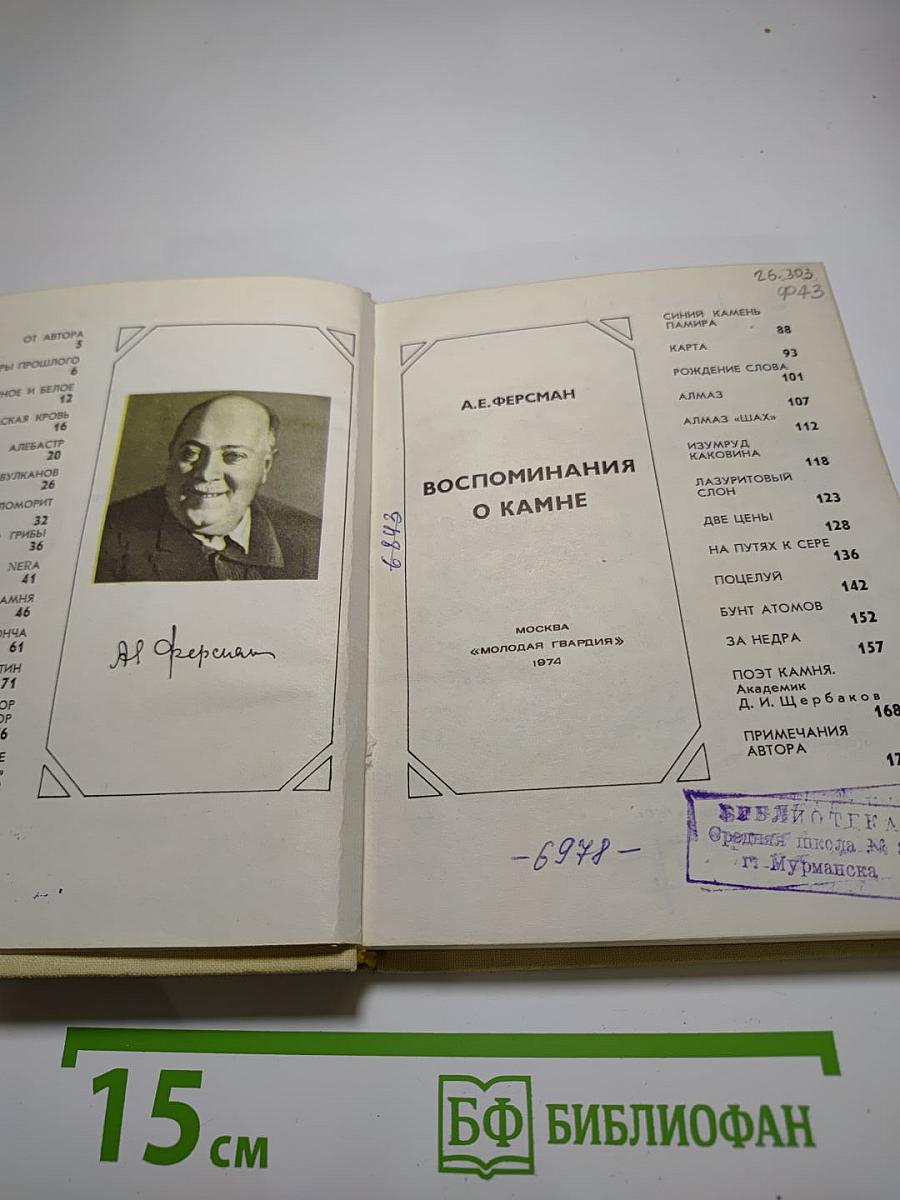 ОТ АВТОРА
5
ПРОШЛОГО
6
И БЕЛОЕ
12
КРОВЬ
16
АЛЕБАСТР
20
26
32
ГРИБЫ
36
NERA
41
46
61
71
А. Е. ФЕРСМАН
ВОСПОМИНАНИЯ
О КАМНЕ
МОСКВА
«МОЛОДАЯ ГВАРДИЯ»
1974
6843
26.303
Ф43
СИНИЙ КАМЕНЬ
ПАМИРА
88
КАРТА
93
РОЖДЕНИЕ СЛОВА
101
АЛМАЗ
107
АЛМАЗ «ШАХ»
112
ИЗУМРУД
КАКОВИНА
118
ЛАЗУРИТОВЫЙ
СЛОН
123
ДВЕ ЦЕНЫ
128
НА ПУТЯХ К СЕРЕ
136
ПОЦЕЛУЙ
142
БУНТ АТОМОВ
152
ЗА НЕДРА
157
ПОЭТ КАМНЯ.
Академик
Д. И. Щербаков
168
ПРИМЕЧАНИЯ
АВТОРА
АЕ Ферсман
-6978-
БИБЛИОТЕКА
Средняя школа №
г. Мурманска
15 см
БФ БИБЛИОФАН